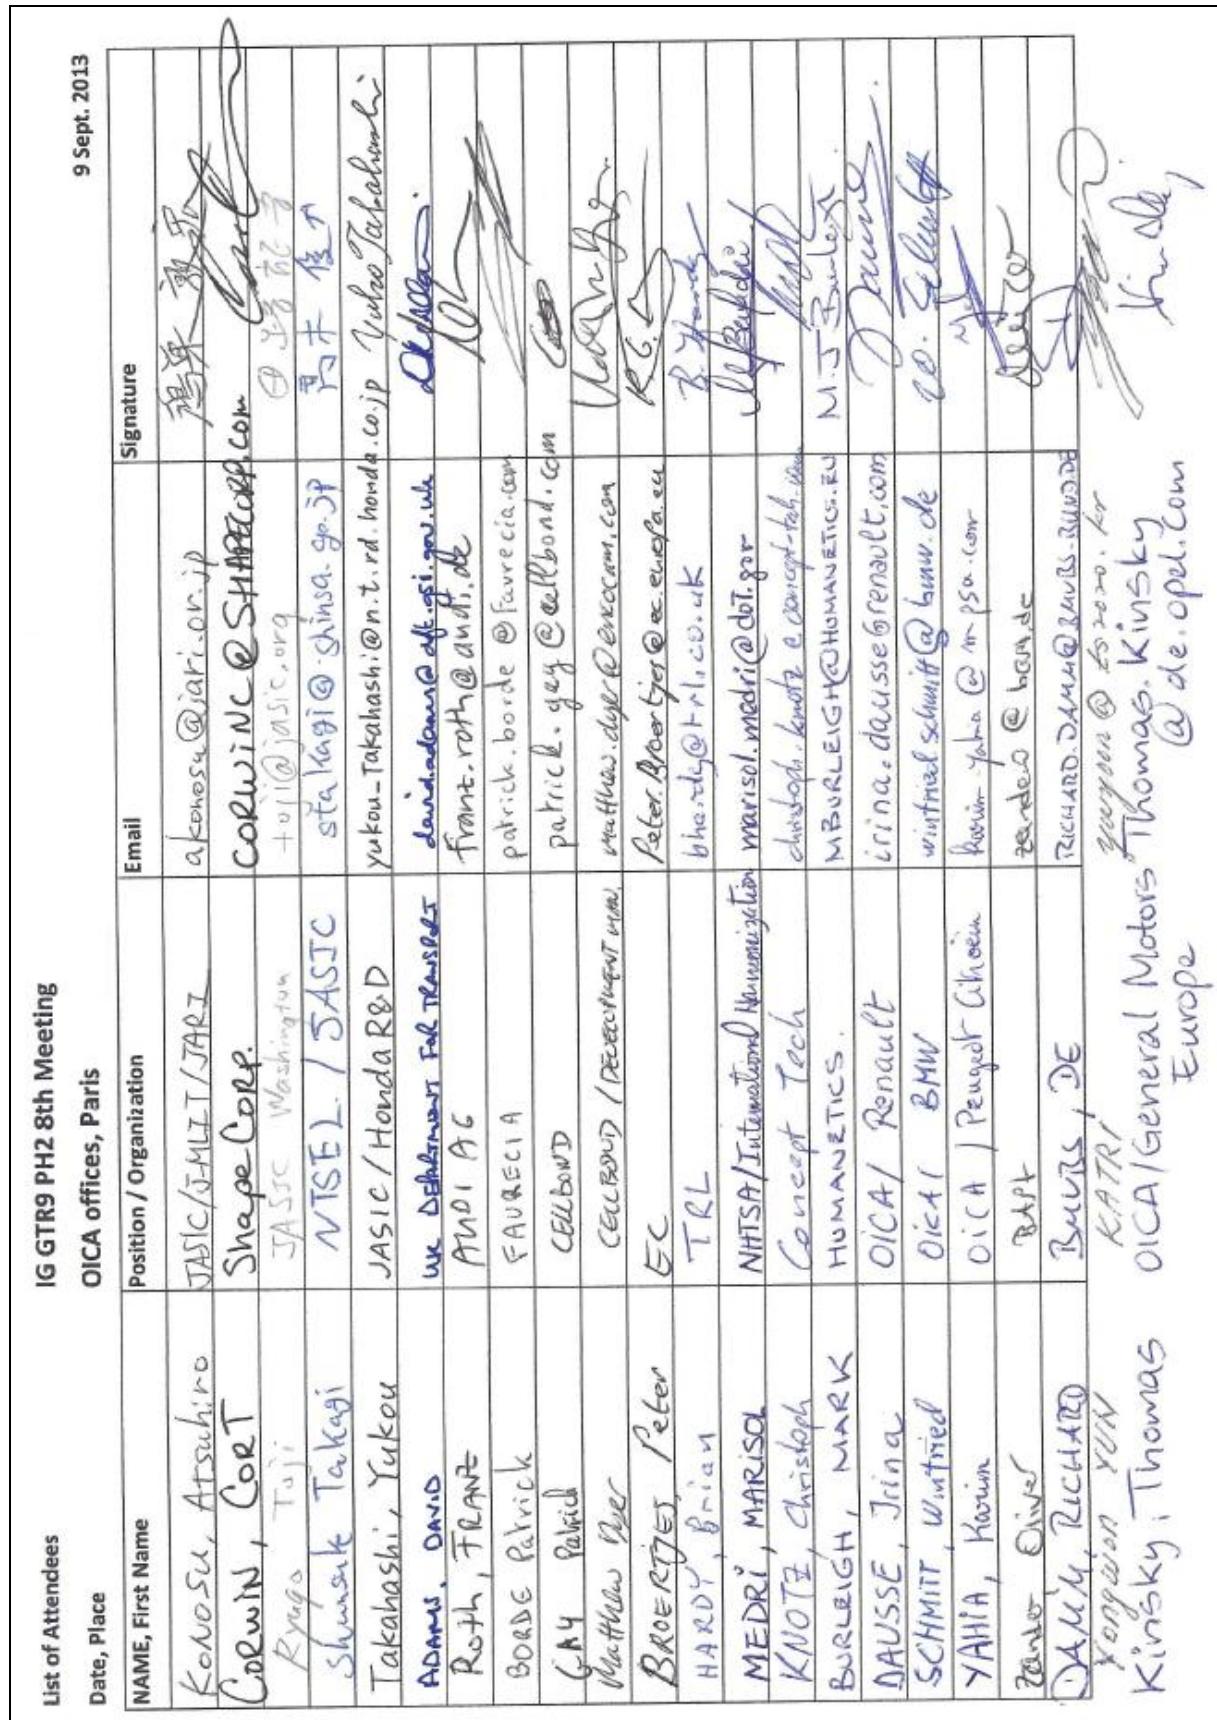 List of Attendees IG GTR9 PH2 8th Meeting
Date, Place OICA offices, Paris 9 Sept. 2013
NAME, First Name Position / Organization Email Signature
KONOSU, Atsuhiro JASIC/J-MLIT/JARI akonosu@jari.or.jp
CORWIN, CORT Shape Corp. CORWINC@SHAPECORP.com
Ryugo Toji JASIC Washington toji@jasic.org
Shunsuke Takagi NTSEL / JASIC stakagi@shinsa.go.jp 髙木 俊介
Takahashi, Yukou JASIC / Honda R&D yukou_Takahashi@n.t.rd.honda.co.jp Yukou Takahashi
ADAMS, DAVID UK DEPARTMENT FOR TRANSPORT david.adams@dft.gsi.gov.uk
Roth, FRANZ AUDI AG Franz.roth@audi.de
BORDE Patrick FAURECIA patrick.borde@faurecia.com
GAY Patrick CELLBOND patrick.gay@cellbond.com
Matthew Dyer CELLBOND / DEVELOPMENT MAN. matthew.dyer@encocam.com
BROERTJES, Peter EC Peter.Broertjes@ec.europa.eu
HARDY, Brian TRL bhardy@trl.co.uk B. Hardy
MEDRI, MARISOL NHTSA/International Harmonization marisol.medri@dot.gov
KNOTZ, Christoph Concept Tech christoph.knotz@concept-tech.com
BURLEIGH, MARK HUMANETICS. MBURLEIGH@HUMANETICS.EU M.J Burleigh.
DAUSSE, Irina OICA / Renault irina.dausse@renault.com
SCHMITT, Winfried OICA / BMW winfried.schmitt@bmw.de
YAHIA, Karim OICA / Peugeot Citroën karim.yahia@mpsa.com
Zander Oliver BASt zander@bast.de
DAMM, RICHARD BMVBS, DE RICHARD.DAMM@BMVBS.BUND.DE
YONGWON YUN KATRI
Kinsky, Thomas OICA/General Motors Europe Thomas.Kinsky@de.opel.com